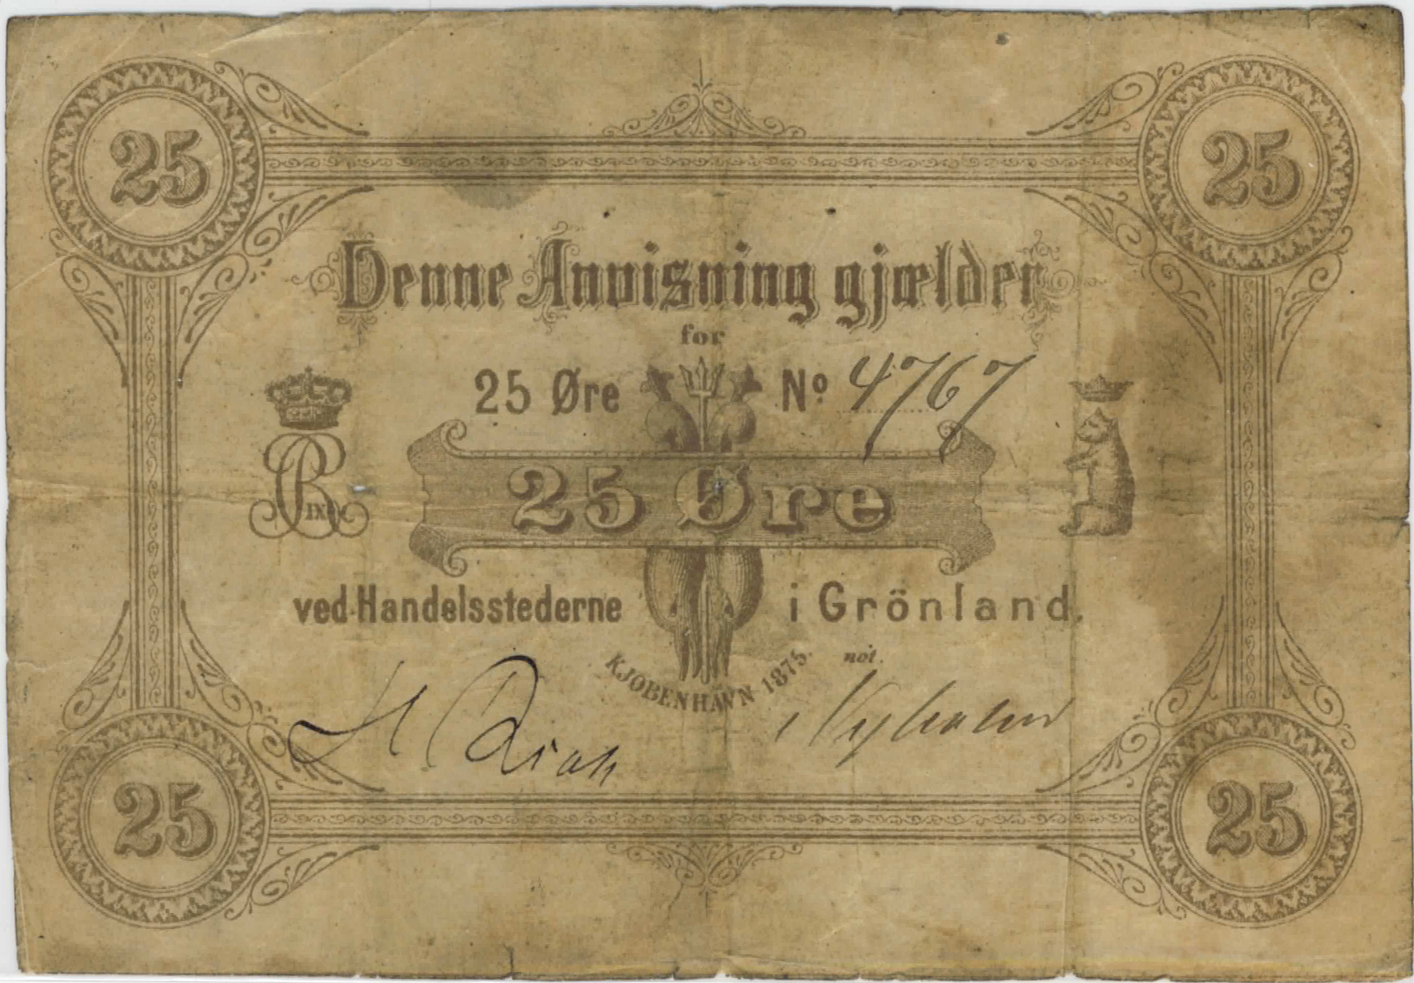 25 25
Denne Anvisning gjælder
for
25 Øre Nº 4767
IX
25 Øre
ved Handelsstederne i Grönland.
KJØBENHAVN 1875.
not.
H Rink
Nyholm
25 25